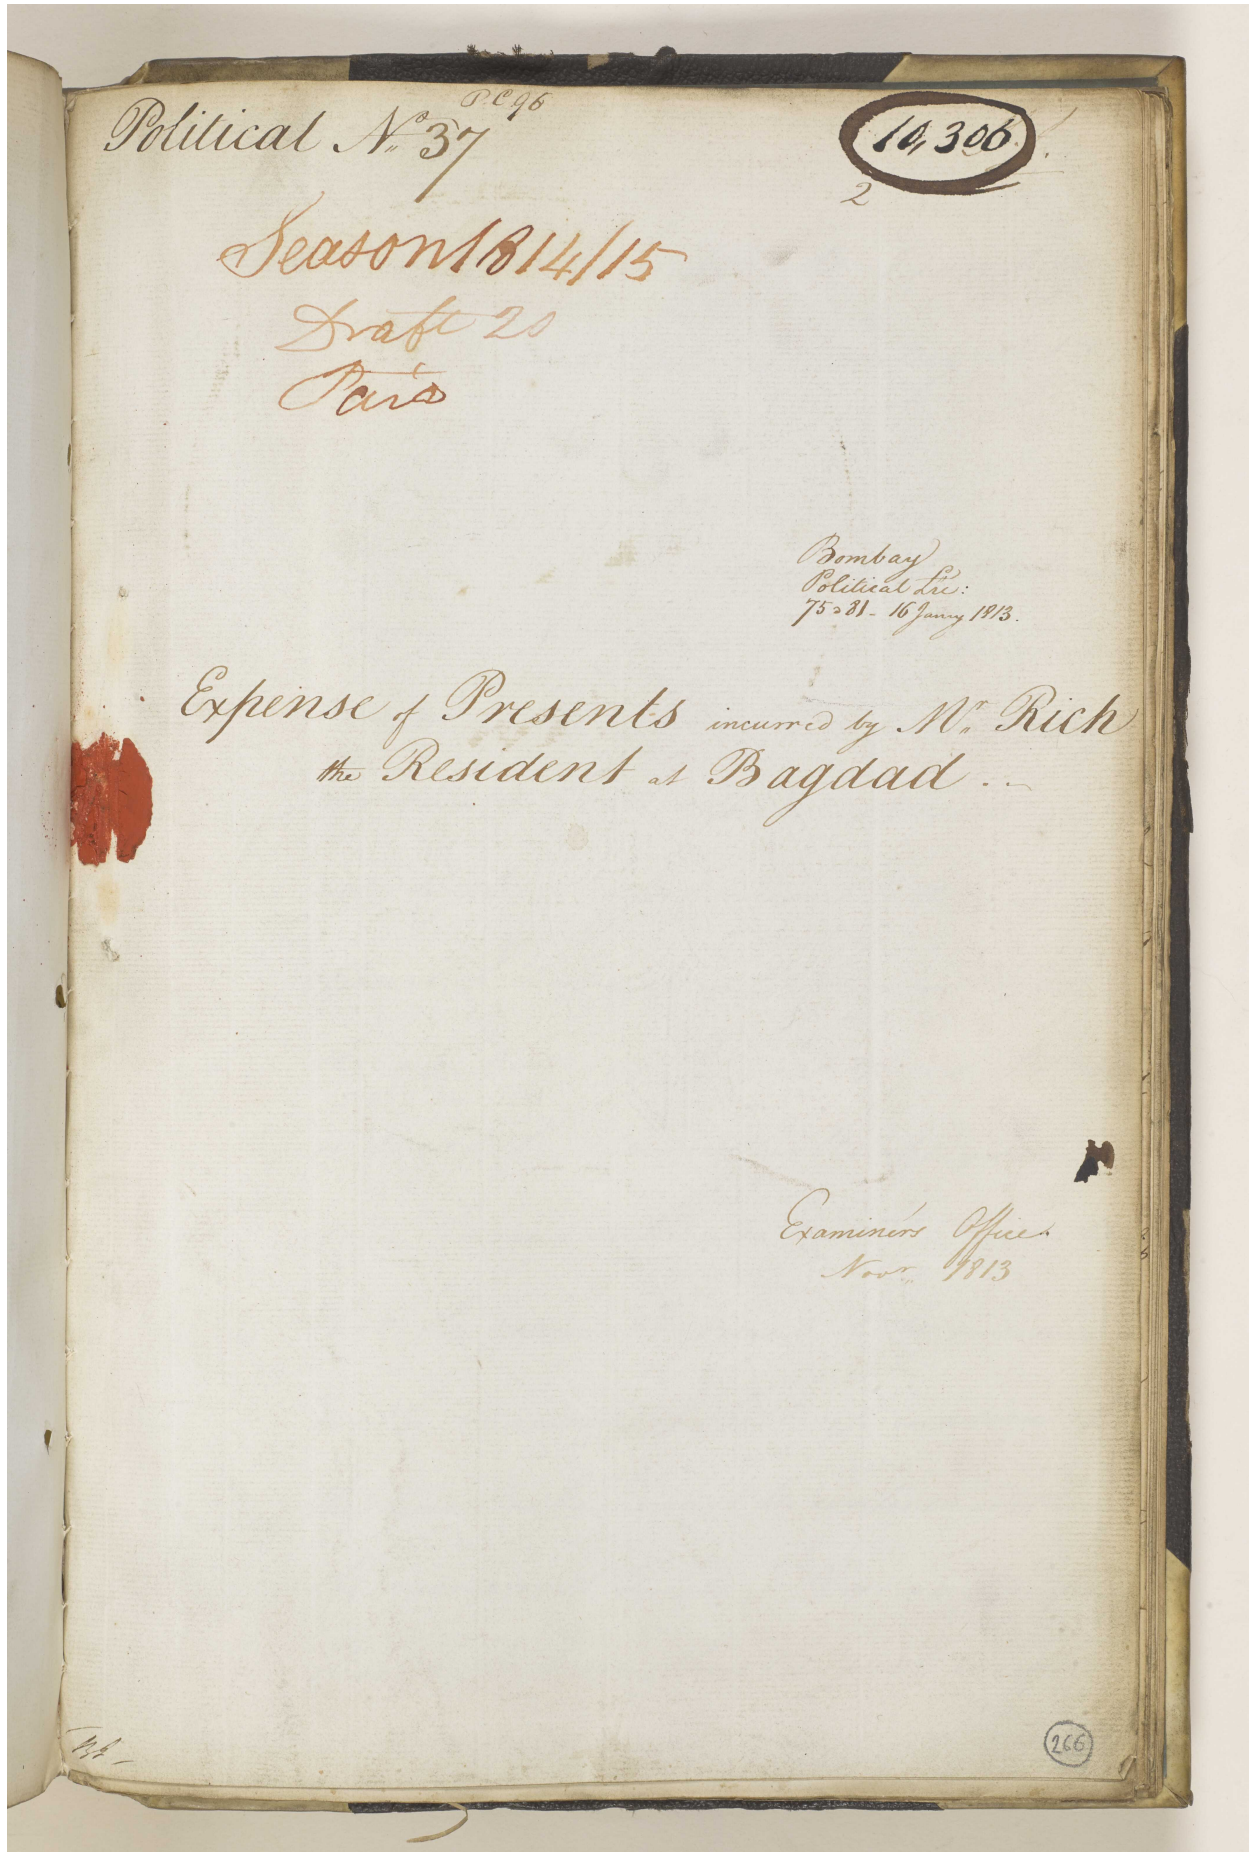 P.C. 96
Political No. 37
10,306
2
Season 1814/15
Draft 20
Bombay
Political Lre:
75 a 81 - 16 Jany 1813.
Expense of Presents incurred by Mr. Rich
the Resident at Bagdad ..
Examiner's Office
Novr. 1813
266